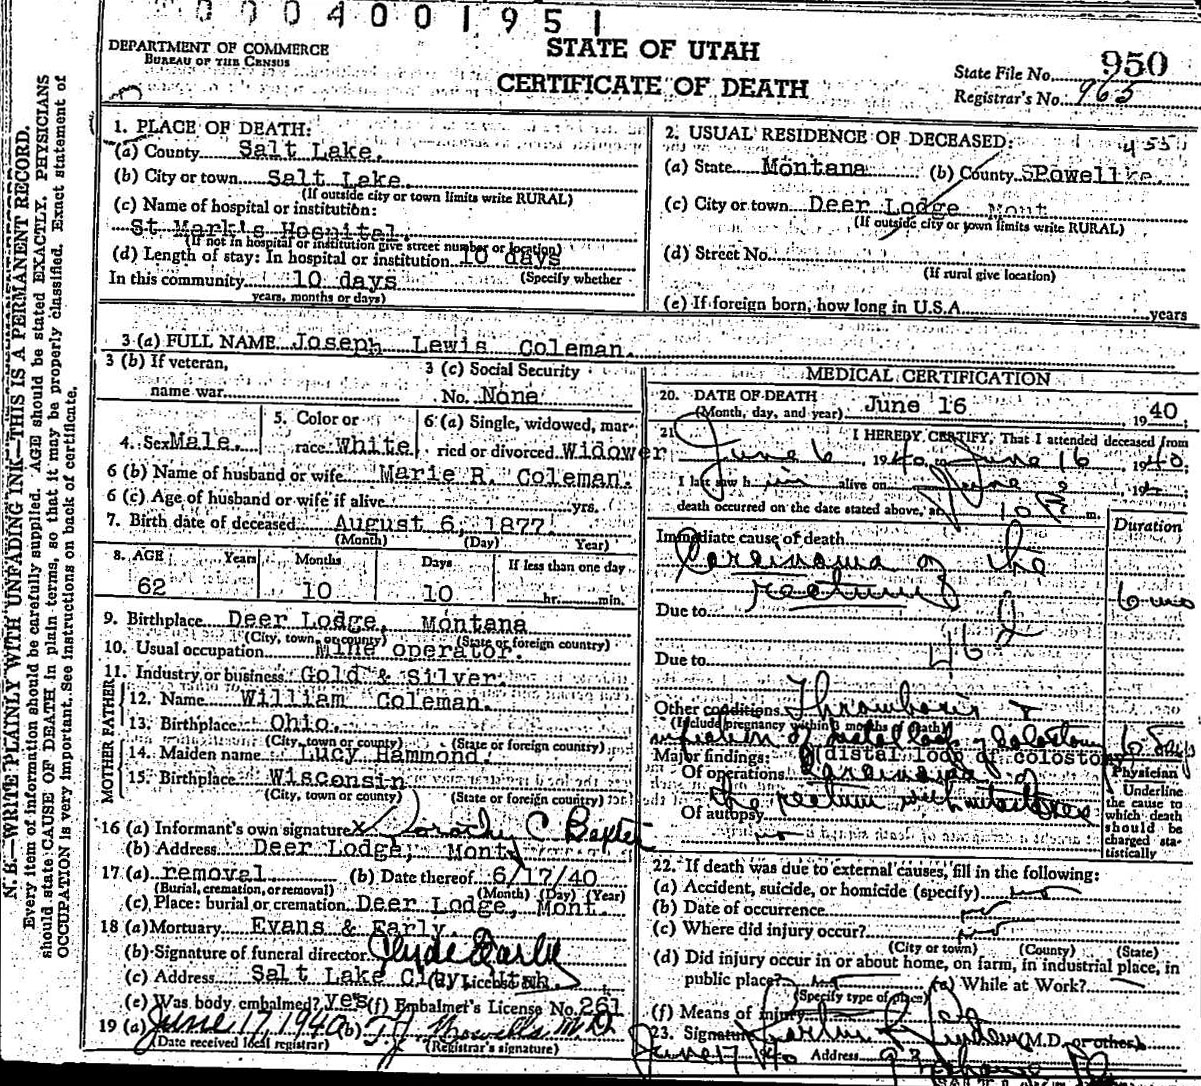 0004001951
DEPARTMENT OF COMMERCE
BUREAU OF THE CENSUS
STATE OF UTAH
CERTIFICATE OF DEATH
State File No. 950
Registrar's No. 965
N. B.—WRITE PLAINLY WITH UNFADING INK—THIS IS A PERMANENT RECORD.
Every item of information should be carefully supplied. AGE should be stated EXACTLY. PHYSICIANS
should state CAUSE OF DEATH in plain terms, so that it may be properly classified. Exact statement of
OCCUPATION is very important. See instructions on back of certificate.
1. PLACE OF DEATH:
(a) County Salt Lake.
(b) City or town Salt Lake.
(If outside city or town limits write RURAL)
(c) Name of hospital or institution:
St Mark's Hospital.
(If not in hospital or institution give street number or location)
(d) Length of stay: In hospital or institution 10 days
(Specify whether
In this community 10 days
years, months or days)
2. USUAL RESIDENCE OF DECEASED:
(a) State Montana (b) County Powell
(c) City or town Deer Lodge Mont
(If outside city or town limits write RURAL)
(d) Street No.
(If rural give location)
(e) If foreign born, how long in U.S.A. years
3 (a) FULL NAME Joseph Lewis Coleman.
3 (b) If veteran,
name war
3 (c) Social Security
No. None
4. Sex Male.
5. Color or
race White
6 (a) Single, widowed, mar-
ried or divorced. Widower
6 (b) Name of husband or wife Marie R. Coleman.
6 (c) Age of husband or wife if alive yrs.
7. Birth date of deceased August 6, 1877.
(Month) (Day) Year)
8. AGE Years Months Days If less than one day
62 10 10 hr. min.
9. Birthplace Deer Lodge, Montana
(City, town, or county) (State or foreign country)
10. Usual occupation Mine operator.
11. Industry or business Gold & Silver
FATHER
12. Name William Coleman.
13. Birthplace Ohio.
(City, town or county) (State or foreign country)
MOTHER
14. Maiden name Lucy Hammond.
15. Birthplace Wisconsin
(City, town or county) (State or foreign country)
16 (a) Informant's own signature x Dorothy C Baxter
(b) Address Deer Lodge, Mont
17 (a) removal (b) Date thereof 6/17/40
(Burial, cremation, or removal) (Month) (Day) (Year)
(c) Place: burial or cremation Deer Lodge, Mont.
18 (a) Mortuary Evans & Early
(b) Signature of funeral director Clyde Early
(c) Address Salt Lake City, Utah
(e) Was body embalmed? yes (f) Embalmer's License No. 261
19 (a) June 17 1940 (b) M.D.
(Date received local registrar) (Registrar's signature)
MEDICAL CERTIFICATION
20. DATE OF DEATH
(Month, day, and year) June 16 1940;
21. I HEREBY CERTIFY, That I attended deceased from
June 6, 1940, to June 16 1940;
I last saw him alive on June
death occurred on the date stated above, at 10 m.
Duration
Immediate cause of death
Carcinoma of the
rectum 6 mo
Due to
46
Due to
Other conditions Thrombosis &
(Include pregnancy within 3 months of death)
infection of distal loop of colostomy 6 days
Major findings: (distal loop of colostomy
Of operations Carcinoma of
the rectum with metastases
Of autopsy
no
Physician
Underline
the cause to
which death
should be
charged sta-
tistically
22. If death was due to external causes, fill in the following:
(a) Accident, suicide, or homicide (specify) no
(b) Date of occurrence no
(c) Where did injury occur? no
(City or town) (County) (State)
(d) Did injury occur in or about home, on farm, in industrial place, in
public place? (e) While at Work?
(Specify type of place)
(f) Means of injury
23. Signature (M.D. or other)
June 17 40 Address